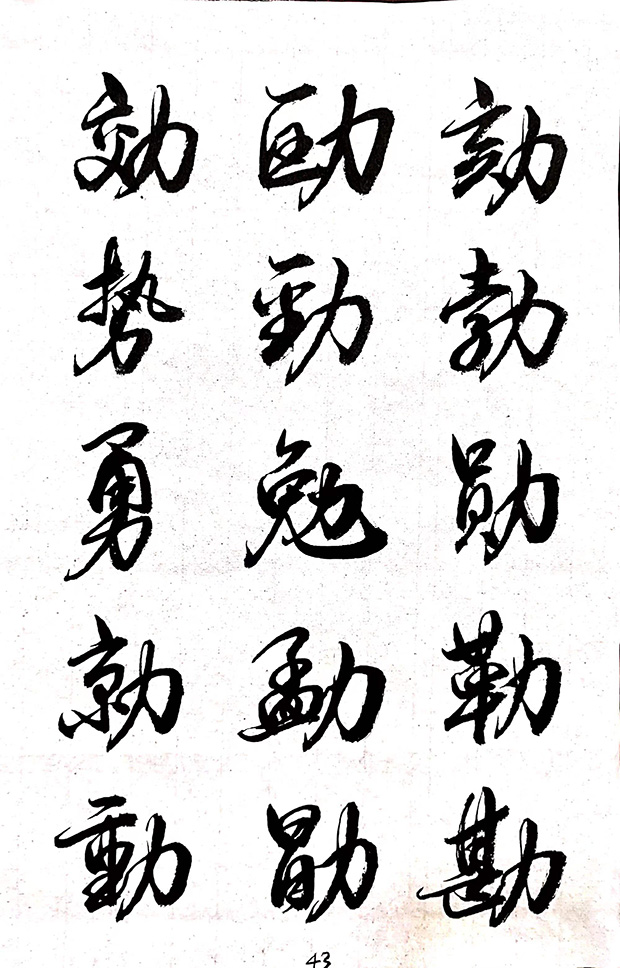 効劻劾
势勁勃
勇勉勋
勍勐勒
動勖勘
43